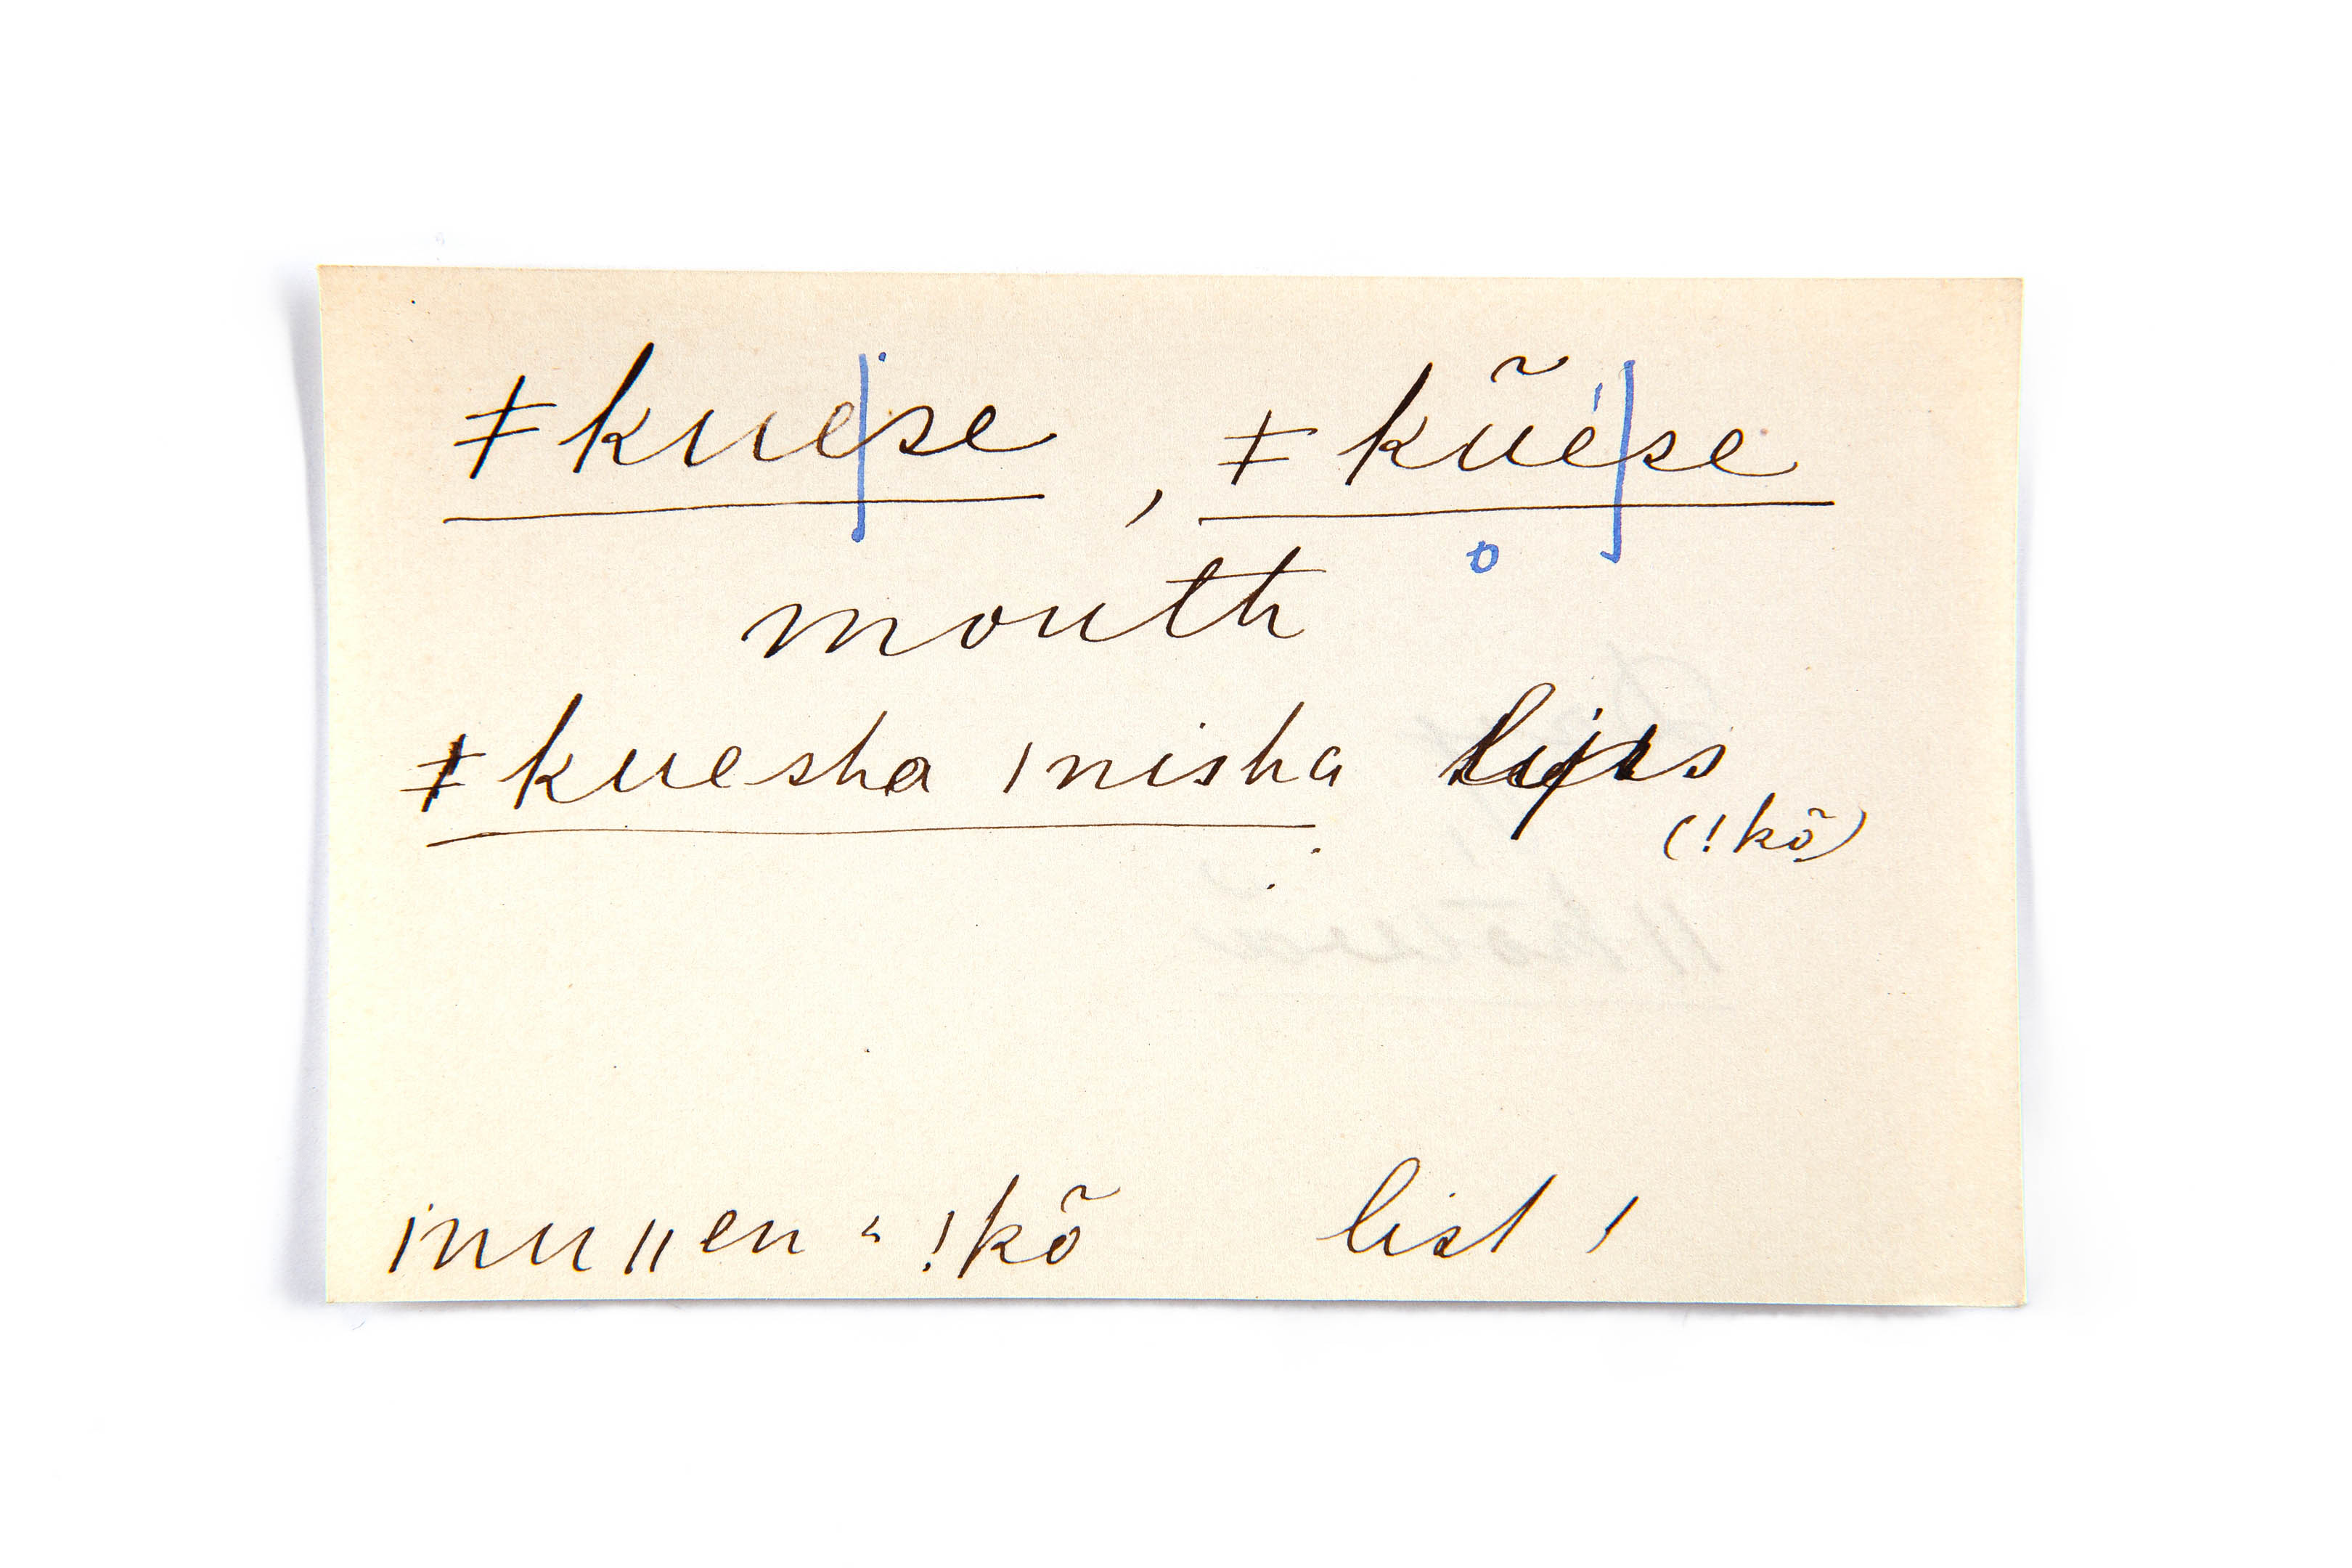 ǂkue|se , ǂkũé|se
o
mouth
ǂkuesha ǀnisha lips
(!kõ)
ǀnuǁen = !kõ list 1